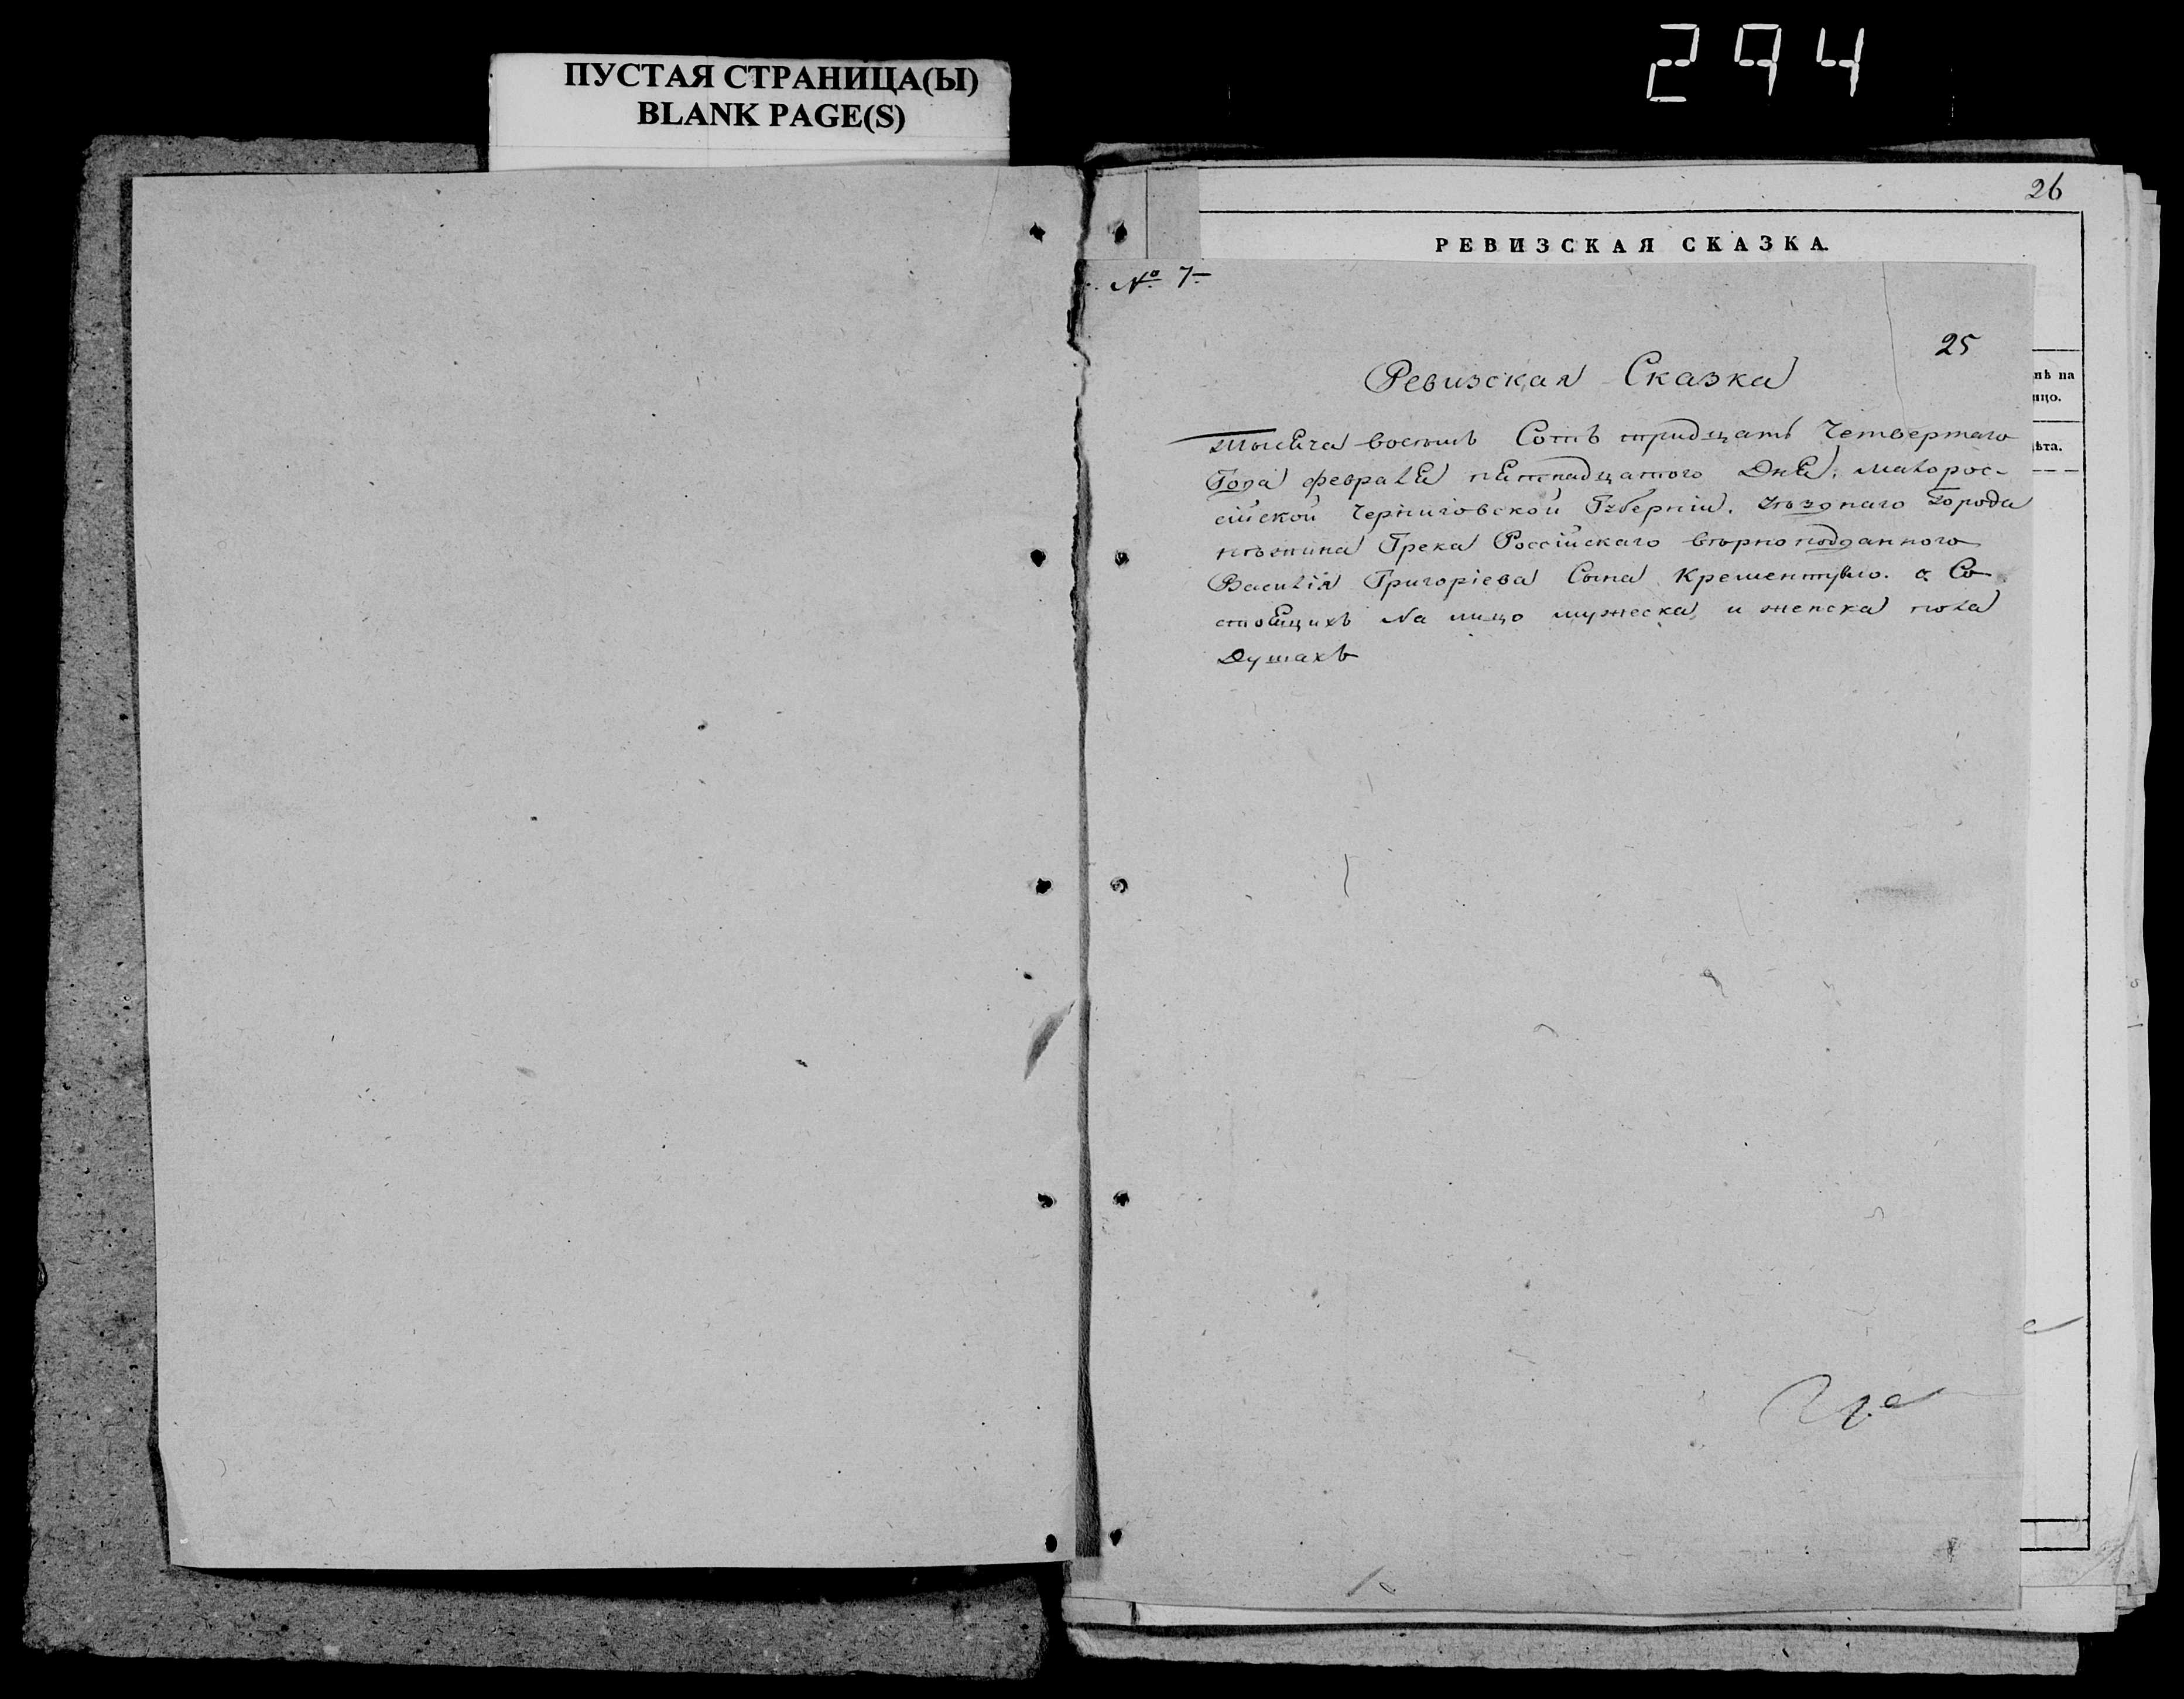 294
ПУСТАЯ СТРАНИЦА(Ы)
BLANK PAGE(S)
26
РЕВИЗСКАЯ СКАЗКА.
№ 7
25
Ревизская Сказка
Тысяча восемь Сотъ тридцать Четвертаго
Года февраля пятнадцатого Дня, малорос-
сійской Черниговской Губерніи, уѣзднаго города
нѣжина Грека Россійскаго вѣрноподданного
Василія Григоріева Сына о Со
стоящихъ На лицо мужеска и женска пола
Душахъ
нѣ на
ицо.
ѣта.